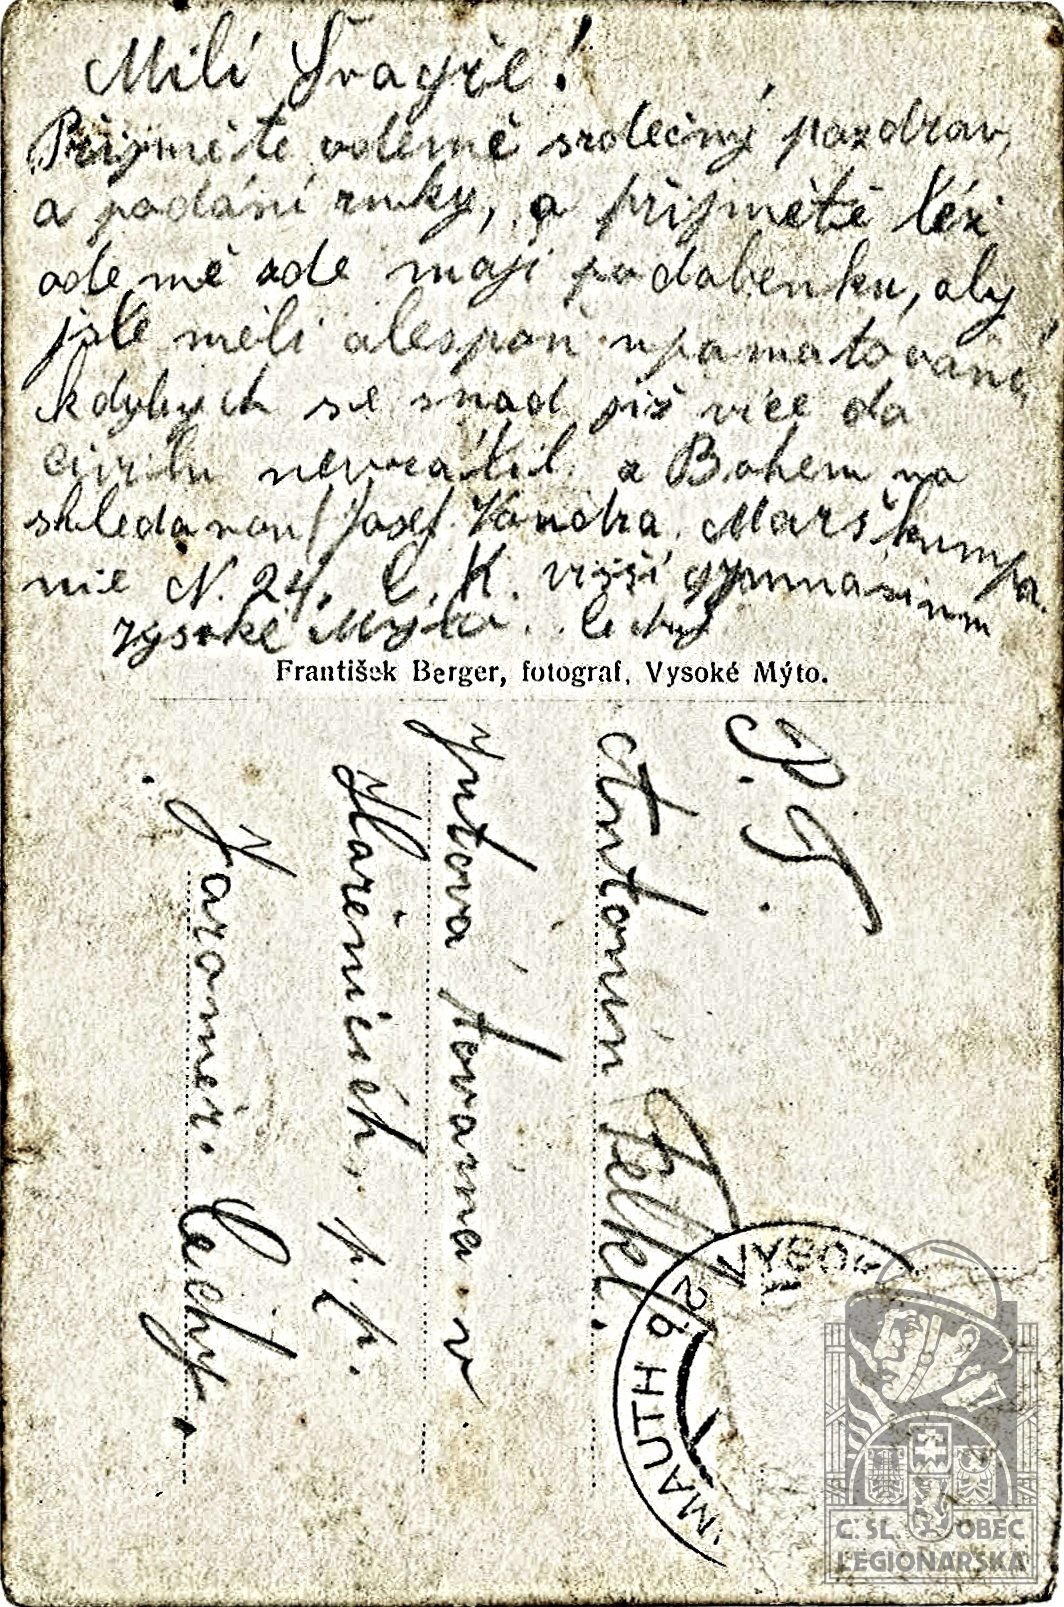 Milí Švagře!
Přijměte odemě srdečný pozdrav,
a podání ruky, a přijmětě též
odemě zde moji podobenku, aby
jste měli alespoň upamatování,
kdybych se snad již více do
civilu nevrátil. a Bohem na
skledanou Josef Vondra. Marškumpa
nie N. 24. C. K. višší gymnásium
Vysoké Mýto. Čechy
František Berger, fotograf, Vysoké Mýto.
P. T.
Antonín Felkl.
Jutová továrna v
Hařenicích, p. p.
Jaroměř. Čechy
VYSOK
MAUTH
C.SL. OBEC
LEGIONÁŘSKÁ